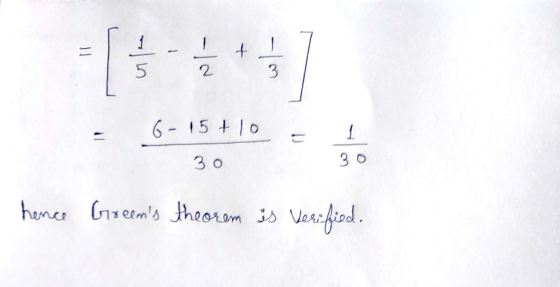 = [ 1/5 - 1/2 + 1/3 ]
= (6 - 15 + 10)/30 = 1/30
hence Green's theorem is Verified.